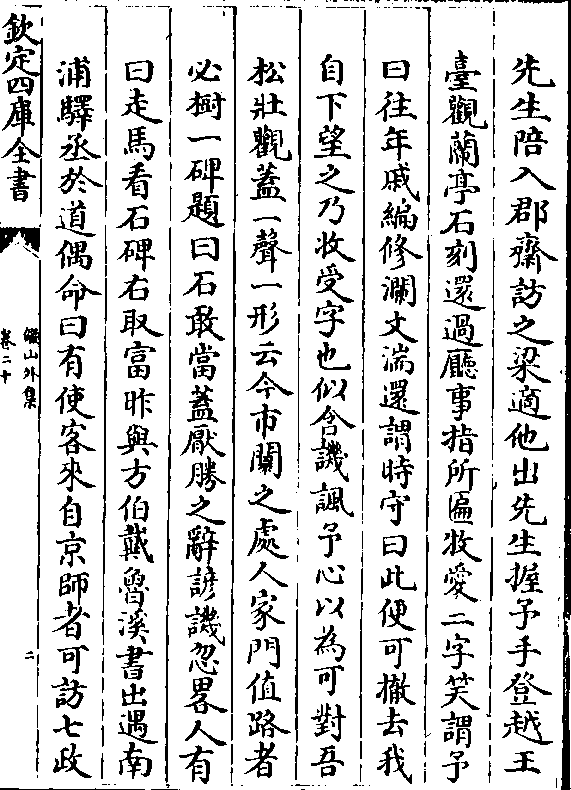 先生陪入郡齋訪之梁適他出先生握予手登越王
臺觀蘭亭石刻還過廳事指所匾牧愛二字笑謂予
曰往年戚編修瀾文湍還謂時守曰此便可撤去我
自下望之乃收受字也似含譏諷予心以為可對吾
松壯觀蓋一聲一形云今市闤之處人家門值路者
必樹一碑題曰石敢當蓋厭勝之辭諺譏忽畧人有
曰走馬看石碑右取富昨與方伯戴魯溪書出遇南
浦驛丞於道偶命曰有使客來自京師者可訪七政
欽定四庫全書
儼山外集
卷二十
二